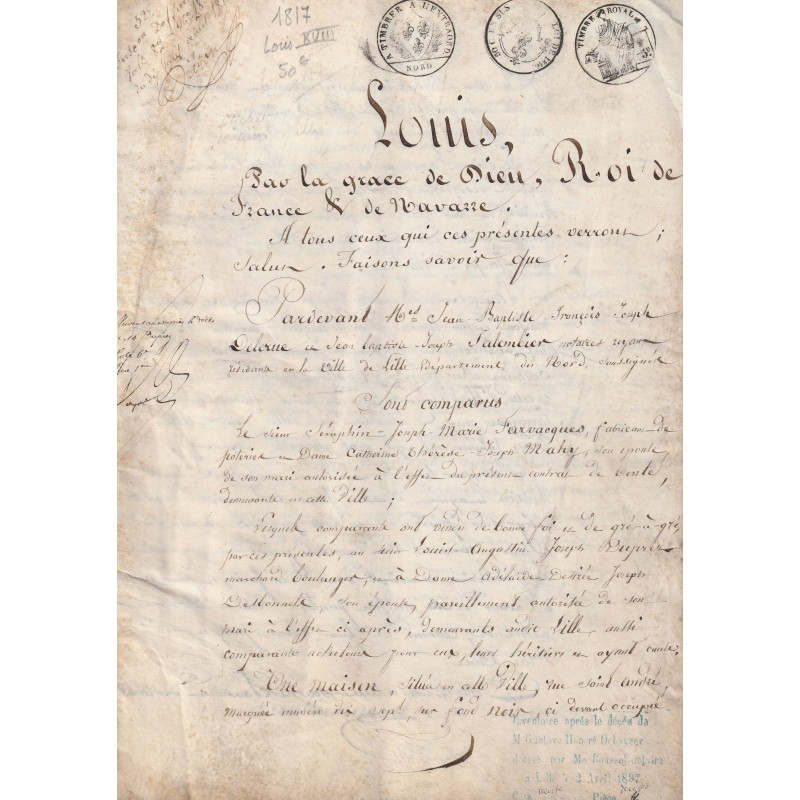 1817
Louis XVIII
50€
A TIMBRER A L'EXTRAORD.
NORD
TIMBRE ROYAL
Louis,
Par la grace de Dieu, Roi de
France & de Navarre.
A tous ceux qui ces présentes verront,
Salut. Faisons savoir que :
Pardevant Mes Jean-Baptiste François Joseph
Delerue et Jean Baptiste Joseph Salembier notaires royaux
résidant en la Ville de Lille Département du Nord, soussignés
Sont comparus
Le Sieur Séraphin-Joseph-Marie Farvacques, fabricant de
poteries et Dame Catherine Thérèse-Joseph Mahy, son épouse
de son mari autorisée à l'effet du présent contrat de vente,
demeurants en cette Ville ;
Lesquels comparants ont vendu de bonne foi et de gré-à-gré
par ces présentes, au sieur Louis-Augustin Joseph Duprez
marchand boulanger, et à Dame Adélaïde Desirée Joseph
Desbonnets, son épouse, pareillement autorisée de son
mari à l'effet ci après, demeurants audit Lille, aussi
comparants acheteurs pour eux, leurs héritiers et ayant cause.
Une maison, située en cette Ville, rue Saint André,
marquée numéro dix sept, sur fond noir, ci devant occupée
Inventaire après le décès de
M Gustave Honoré
dressé par Me Roussel notaire
à Lille le 2 Avril 1897
Cote
Pièce